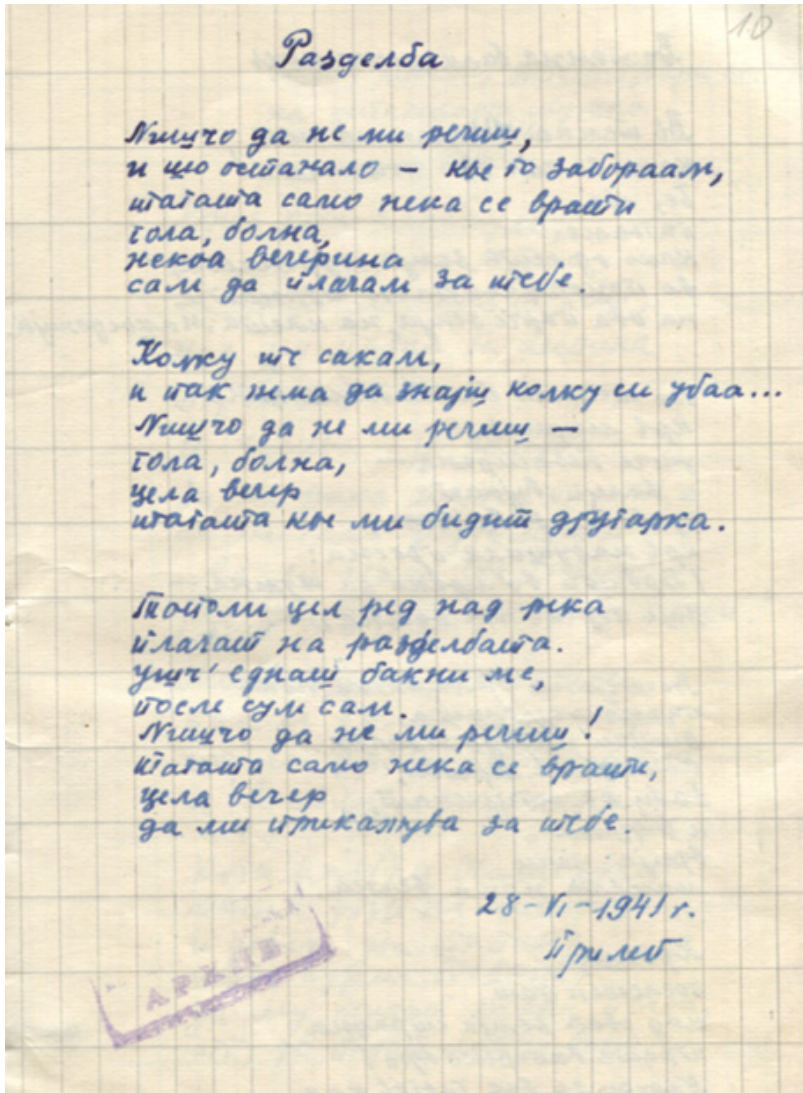 10
Разделба
Ништчо да не ми речиш,
и що останало – кье го забораам,
тагата само нека се врати
гола, болна,
некоа вечерина
сам да плачам за тебе.
Колку те сакам,
и пак нема да знајш колку си убаа...
Ништчо да не ми речиш –
гола, болна,
цела вечер
тагата кье ми бидит другарка.
Тополи цел ред над река
плачат на разделбата.
ушч' еднаш бакни ме,
после сум сам.
Ништчо да не ми речиш!
тагата само нека се врати,
цела вечер
да ми прикажува за тебе.
28-VI-1941 г.
Прилеп
АРХИВ